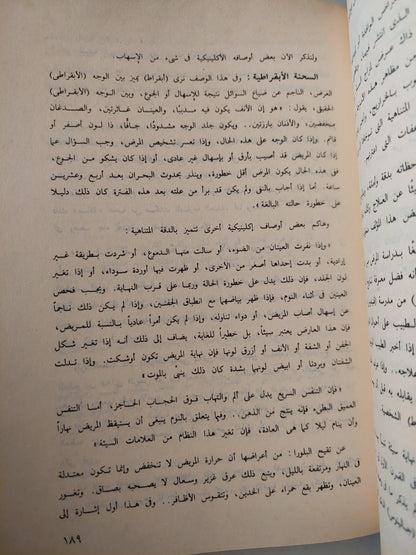 ولنذكر الآن بعض أوصافه الأكلينيكية فى شىء من الإسهاب.
السحنة الأبقراطية : وفى هذا الوصف نرى (أبقراط) يميز بين الوجه (الأبقراطى)
العرض، الناجم عن ضياع السوائل نتيجة للإسهال أو الجوع، وبين الوجه (الأبقراطى)
الحقيقى، يقول : «هو إن الأنف يكون فيه مدببًا، والعينان غائرتين، والصدغان
منخفضين، والأذنان باردتين. ويكون جلد الوجه مشدودًا، جافًا، ذا لون أصفر أو
قاتم. وإذا كان الوجه على هذه الحال، وإذا تعسر تشخيص المرض، وجب السؤال عما
إذا كان المريض قد أصيب بأرق أو بإسهال غير عادى، أو إذا كان يشكو من الجوع،
ففى هذه الحال يكون المرض أقل خطورة، وينذر بحدوث البحران بعد أربع وعشرين
ساعة. أما إذا أجاب بالنفى ولم يكن قد برأ من علته بعد هذه الفترة كان ذلك دليلا
على خطورة حالته البالغة».
وهاكم بعض أوصاف إكلينيكية أخرى تتميز بالدقة المتناهية :
«وإذا نفرت العينان من الضوء، أو سالت منها الدموع، أو شردت بطريقة غير
إرادية، أو بدت إحداها أصغر من الأخرى، أو ظهرت فيها أوردة سوداء، أو إذا تغير
لون الجلد، فإن ذلك يدل على خطورة الحالة وربما على قرب النهاية. ويجب فحص
العينين فى أثناء النوم، فإذا ظهر بياضها مع انطباق الجفنين، وإذا لم يكن ذلك ناجمًا
عن إسهال أصاب المريض، أو دواء تناوله، وإذا لم يكن أمراً عادياً بالنسبة للمريض،
فإن هذا العارض يعتبر سيئاً، بل خطيراً للغاية، يضاف إلى ذلك أنه إذا تغير شكل
الجفن أو الشفة أو الأنف أو أزرق لونها فإن نهاية المريض تكون أوشكت. وإذا تدلت
الشفتان وبردتا أو ابيض لونها بشدة كان ذلك ينبئ بالموت»
«فإن التنفس السريع يدل على ألم والتهاب فوق الحجاب الحاجز، أما التنفس
العميق البطىء فإنه ينتج من الذهن.. وفيها يتعلق بالنوم ينبغى أن يستيقظ المريض نهاراً
وأن ينام ليلا كما هى العادة، فإن تغير هذا النظام من العلامات السيئة»
عن تقيح البلورا: من أعراضها أن حرارة المريض لا تنخفض وإنما تكون معتدلة
فى النهار ومرتفعة بالليل، ويتبع ذلك عرق غزير وسعال لا يصحبه بصاق. وتغور
العينان، وتظهر بقع حمراء على الخدين، وتتقوس الأظافر.. وفى هذا أول إشارة إلى
١٨٩